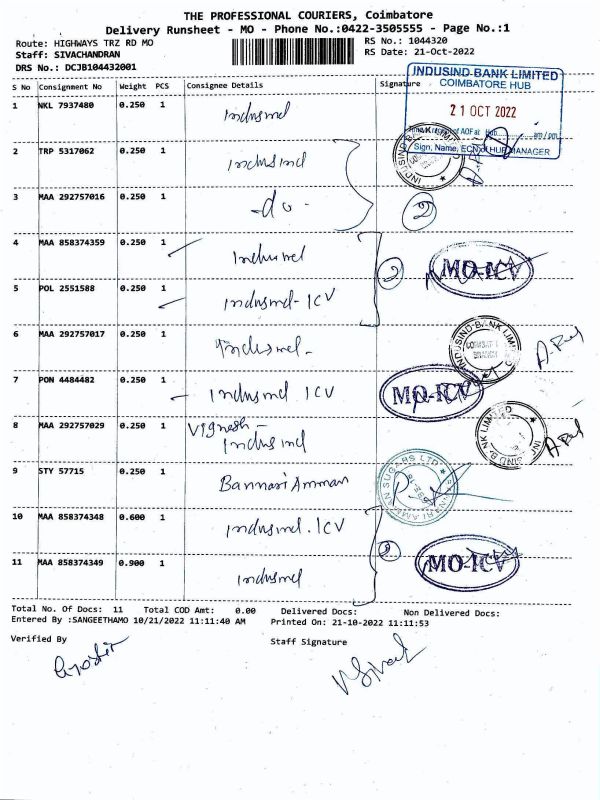 THE PROFESSIONAL COURIERS, Coimbatore
Delivery Runsheet - MO - Phone No.:0422-3505555 - Page No.:1
Route: HIGHWAYS TRZ RD MO
RS No.: 1044320
Staff: SIVACHANDRAN
RS Date: 21-Oct-2022
DRS No.: DCJB104432001
S No Consignment No Weight PCS Consignee Details Signature
INDUSIND BANK LIMITED
COIMBATORE HUB
21 OCT 2022
am / pm
Sign, Name, ECN of HUB MANAGER
1 NKL 7937480 0.250 1 Indusind
2 TRP 5317062 0.250 1 Indusind
INDUSIND BANK LIMITED
3 MAA 292757016 0.250 1 -do- 2
4 MAA 858374359 0.250 1 Indusind 2 MO-ICV
5 POL 2551588 0.250 1 Indusind-ICV
6 MAA 292757017 0.250 1 Indusind-
INDUSIND BANK LIMITED
7 PON 4484482 0.250 1 Indusind ICV MO-ICV
8 MAA 292757029 0.250 1 Vignesh-
Indusind
INDUSIND BANK LIMITED
9 STY 57715 0.250 1 Bannari Amman
BANNARI AMMAN SUGARS LTD
10 MAA 858374348 0.600 1 Indusind.ICV
2 MO-ICV
11 MAA 858374349 0.900 1 Indusind
Total No. Of Docs: 11 Total COD Amt: 0.00 Delivered Docs: Non Delivered Docs:
Entered By :SANGEETHAMO 10/21/2022 11:11:40 AM Printed On: 21-10-2022 11:11:53
Verified By Staff Signature